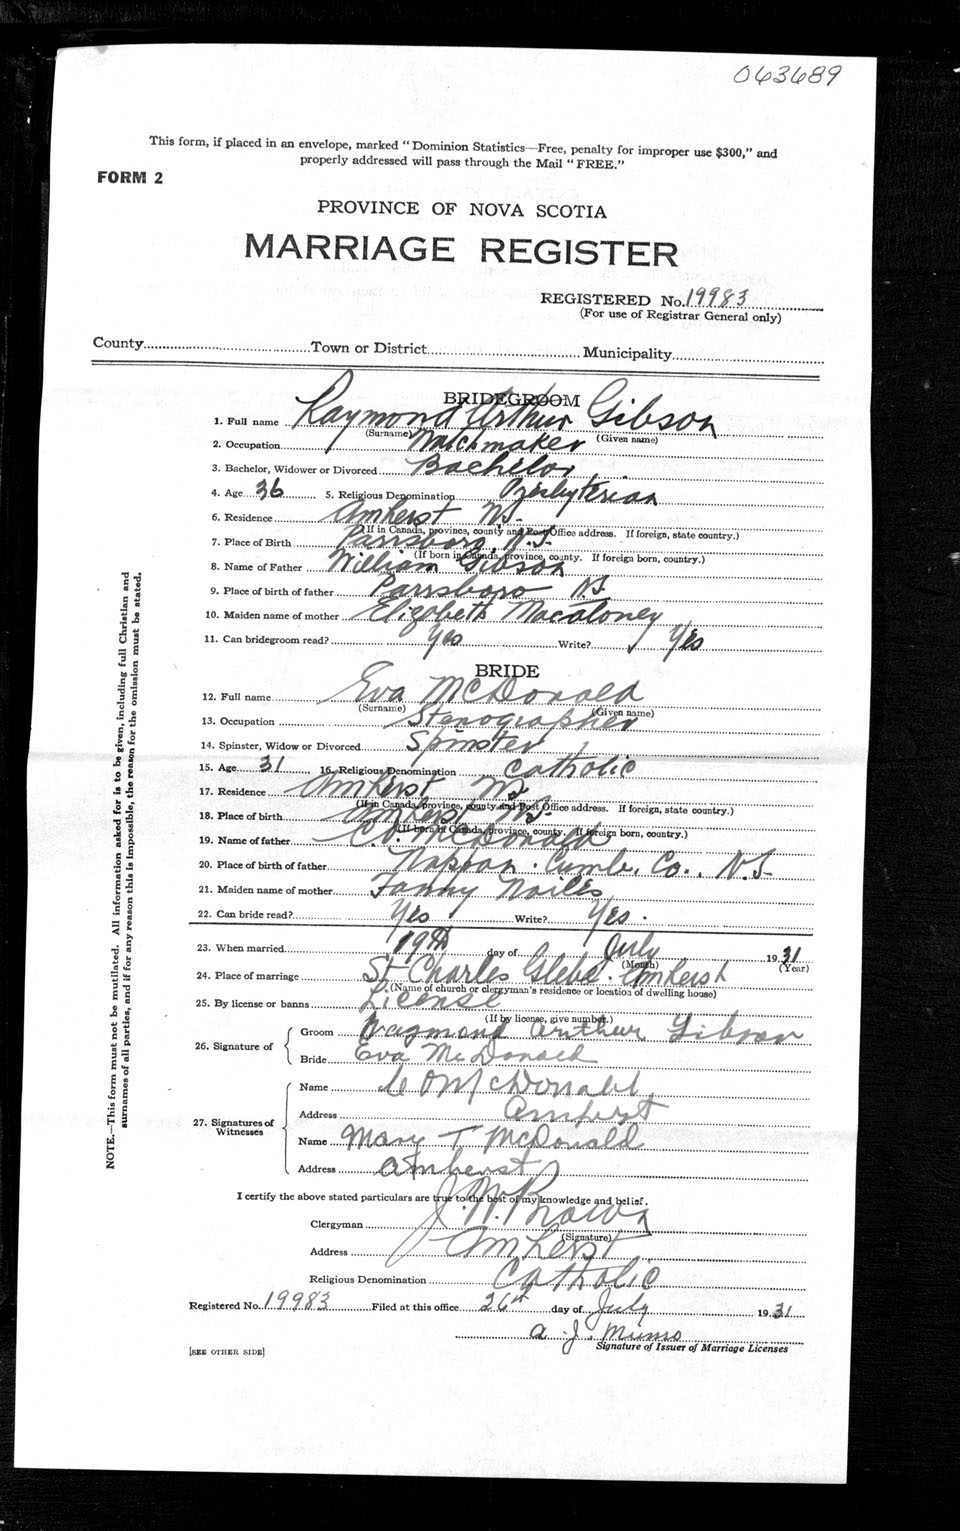 063689
This form, if placed in an envelope, marked "Dominion Statistics—Free, penalty for improper use $300," and
properly addressed will pass through the Mail "FREE."
FORM 2
PROVINCE OF NOVA SCOTIA
MARRIAGE REGISTER
REGISTERED No. 19983
(For use of Registrar General only)
County Town or District Municipality
BRIDEGROOM
1. Full name Raymond Arthur Gibson
(Surname) (Given name)
2. Occupation Watchmaker
3. Bachelor, Widower or Divorced Bachelor
4. Age 36 5. Religious Denomination Presbyterian
6. Residence Amherst N.S.
(If in Canada, province, county and Post Office address. If foreign, state country.)
7. Place of Birth Parrsboro, N.S.
(If born in Canada, province, county. If foreign born, country.)
8. Name of Father William Gibson
9. Place of birth of father Parrsboro N.S.
10. Maiden name of mother Elizabeth Macaloney
11. Can bridegroom read? Yes Write? Yes
BRIDE
12. Full name Eva McDonald
(Surname) (Given name)
13. Occupation Stenographer
14. Spinster, Widow or Divorced Spinster
15. Age 31 16. Religious Denomination Catholic
17. Residence Amherst N.S.
(If in Canada, province, county and Post Office address. If foreign, state country.)
18. Place of birth Amherst N.S.
(If born in Canada, province, county. If foreign born, country.)
19. Name of father C. O. McDonald
20. Place of birth of father Nappan. Cumb. Co., N.S.
21. Maiden name of mother Fanny Noiles
22. Can bride read? Yes Write? Yes.
23. When married 19th day of July 1931
(Month) (Year)
24. Place of marriage St. Charles Glebe. Amherst
(Name of church or clergyman's residence or location of dwelling house)
25. By license or banns License
(If by license, give number.)
26. Signature of
Groom Raymond Arthur Gibson
Bride Eva McDonald
27. Signatures of Witnesses
Name C O McDonald
Address Amherst
Name Mary T McDonald
Address Amherst
I certify the above stated particulars are true to the best of my knowledge and belief.
Clergyman J. W. Brown
(Signature)
Address Amherst
Religious Denomination Catholic
Registered No. 19983 Filed at this office 26th day of July 1931
A. J. Munro
Signature of Issuer of Marriage Licenses
[SEE OTHER SIDE]
NOTE.—This form must not be mutilated. All information asked for is to be given, including full Christian and
surnames of all parties, and if for any reason this is impossible, the reason for the omission must be stated.